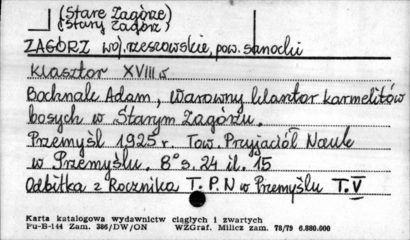 (Stare Zagórze)
(Stary Zagórz)
ZAGÓRZ woj. rzeszowskie, pow. sanocki
Klasztor XVIII w
Bochnak Adam, Warowny klasztor karmelitów
bosych w Starym Zagórzu.
Przemyśl 1925 r. Tow. Przyjaciół Nauk
w Przemyślu. 8° s. 24 il. 15
Odbitka z Rocznika T. P. N w Przemyślu T. V
Karta katalogowa wydawnictw ciągłych i zwartych
Pu-B-144 Zam. 386/DW/ON WZGraf. Milicz zam. 78/79 6.880.000